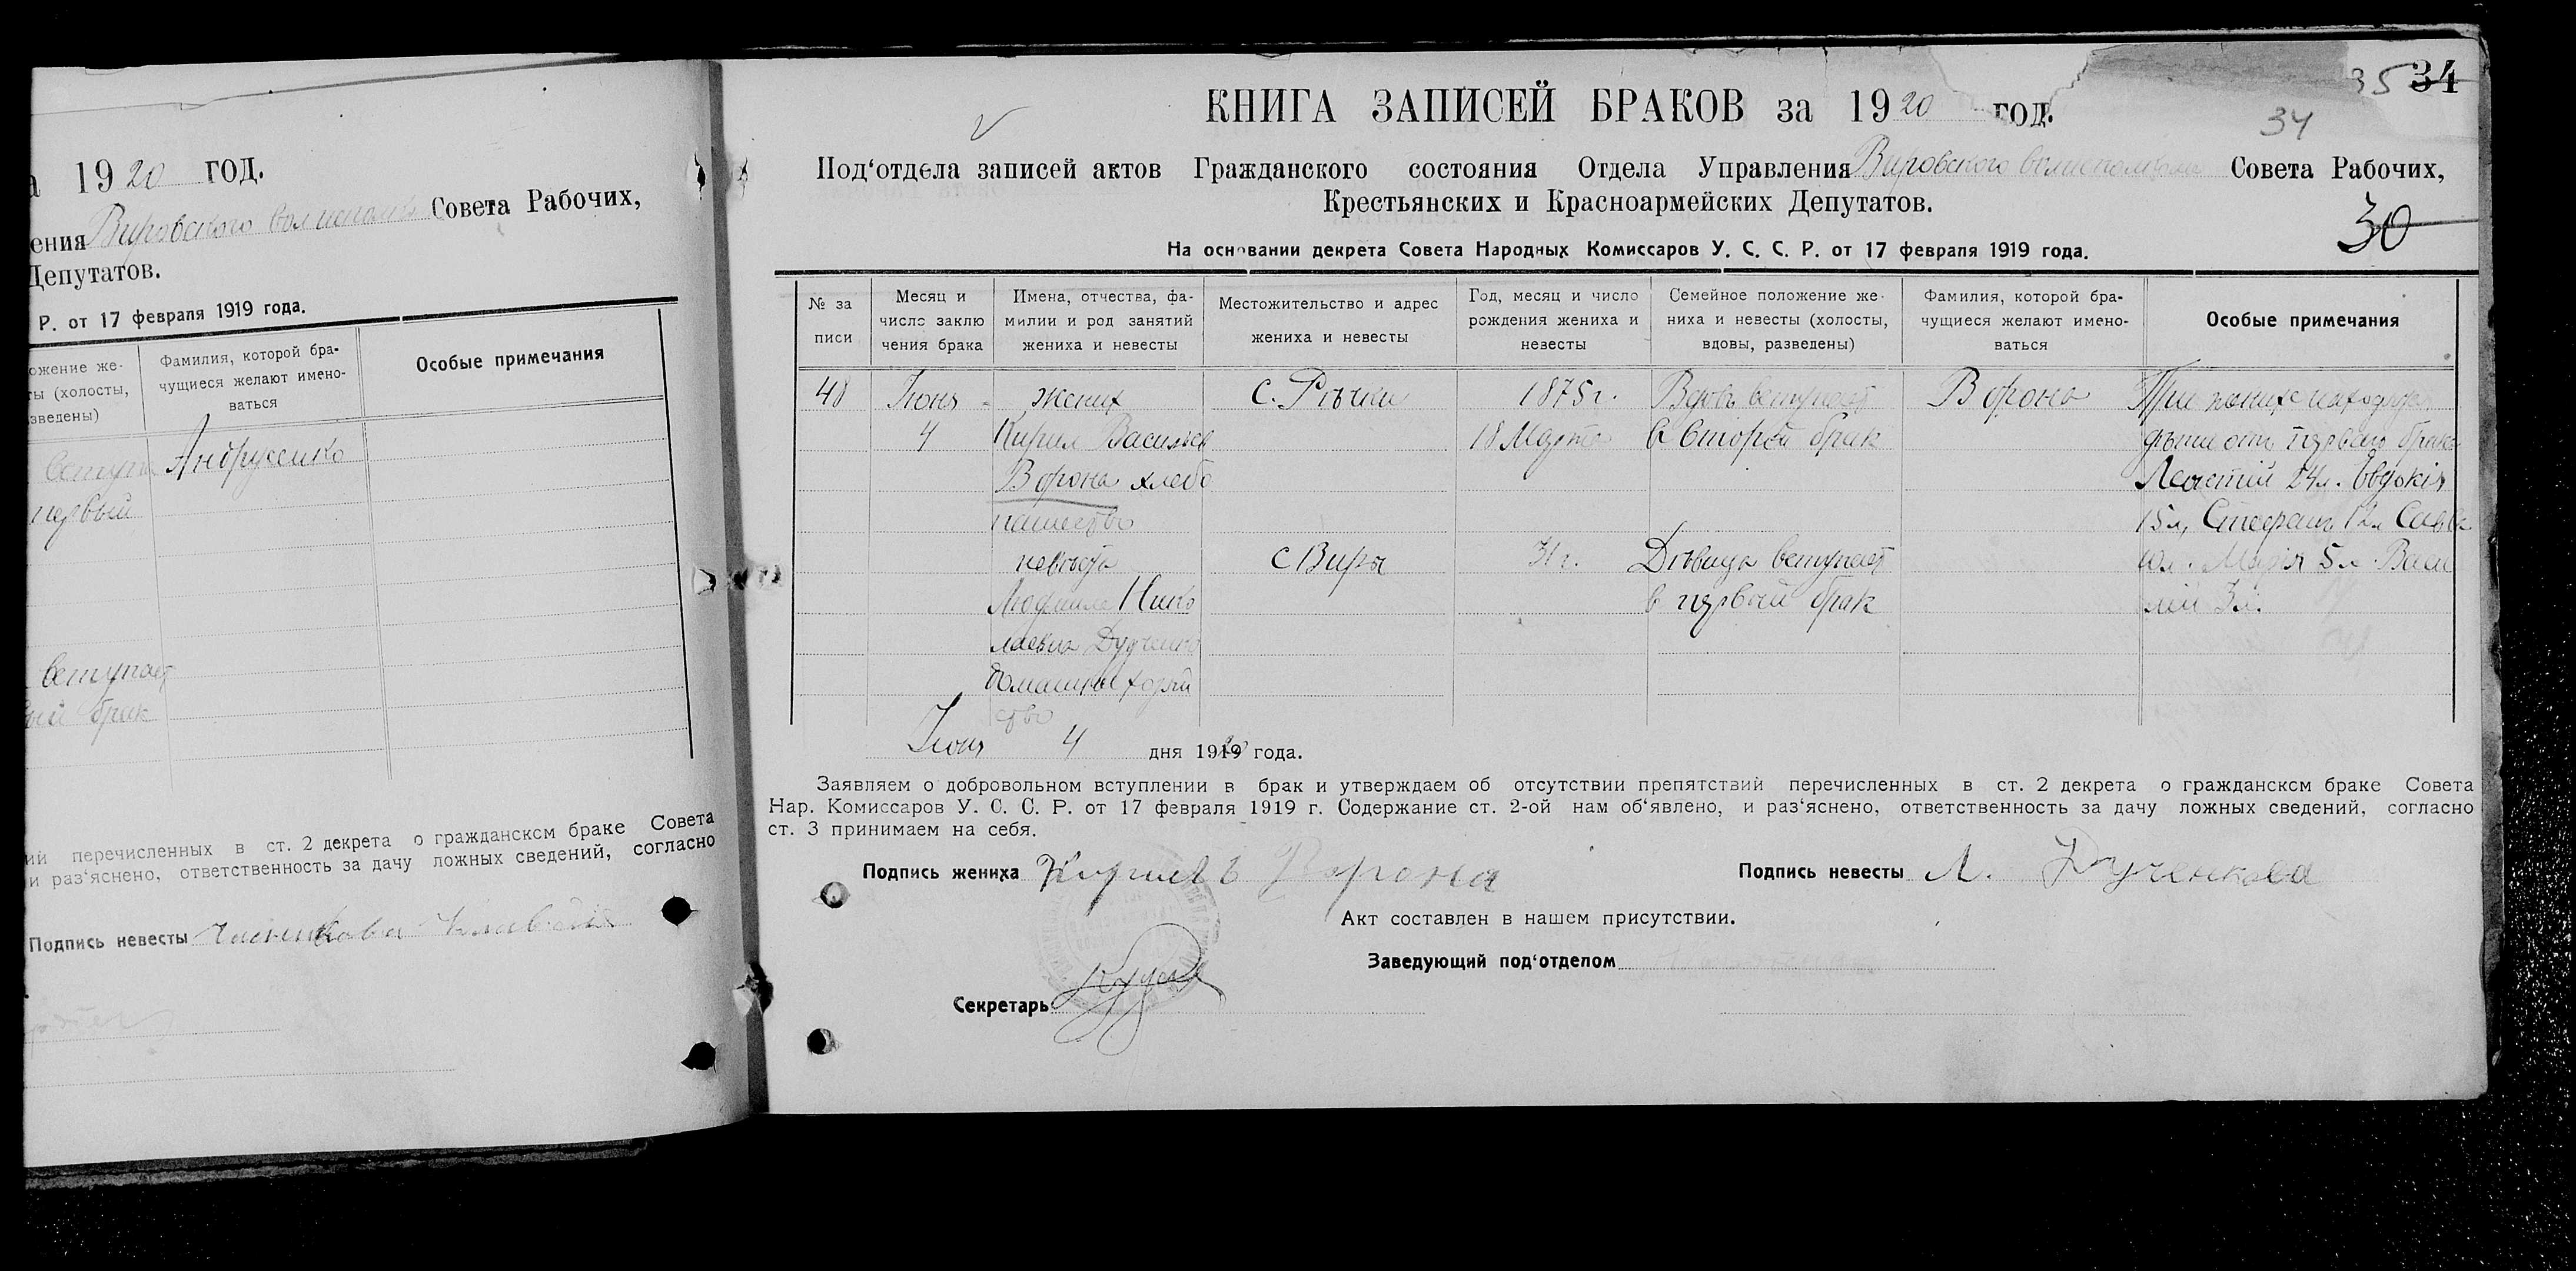 а 1920 год.
ения Вировского волисполк Совета Рабочих,
Депутатов.
Р. от 17 февраля 1919 года.
ожение же-
ты (холосты,
зведены)
Фамилия, которой бра-
чущиеся желают имено-
ваться
Особые примечания
вступа Андрусенко
первый
вступает
ый брак
ий перечисленных в ст. 2 декрета о гражданском браке Совета
и раз'яснено, ответственность за дачу ложных сведений, согласно
Подпись невесты
35 34
КНИГА ЗАПИСЕЙ БРАКОВ за 1920 год.
34
Под'отдела записей актов Гражданского состояния Отдела Управления Вировского волисполкома Совета Рабочих,
Крестьянских и Красноармейских Депутатов.
30
На основании декрета Совета Народных Комиссаров У. С. С. Р. от 17 февраля 1919 года.
№ за
писи
Месяц и
число заклю
чения брака
Имена, отчества, фа-
милии и род занятий
жениха и невесты
Местожительство и адрес
жениха и невесты
Год, месяц и число
рождения жениха и
невесты
Семейное положение же-
ниха и невесты (холосты,
вдовы, разведены)
Фамилия, которой бра-
чущиеся желают имено-
ваться
Особые примечания
48 Июня жених с. Речки 1875 г. Вдовъ вступает Ворона При женихе находятся
4 Кирил Васильев 18 Марта в второй брак дети от первого брака
Ворона хлебо 24 л. Евдокія
пашество 15 л, Стефан 12 л Савва
невеста с Виры 31 г. Девица вступает 10 л. Марія 5 л. Васи
Людмила Нико в первый брак лий 3 л.
лаевна Дудченко
домашнее хозяй
ство
Июня 4 дня 1920 года.
Заявляем о добровольном вступлении в брак и утверждаем об отсутствии препятствий перечисленных в ст. 2 декрета о гражданском браке Совета
Нар. Комиссаров У. С. С. Р. от 17 февраля 1919 г. Содержание ст. 2-ой нам об'явлено, и раз'яснено, ответственность за дачу ложных сведений, согласно
ст. 3 принимаем на себя.
Подпись жениха Кирилъ Ворона Подпись невесты Л. Дученкова
Акт составлен в нашем присутствии.
Заведующий под'отделом
Секретарь